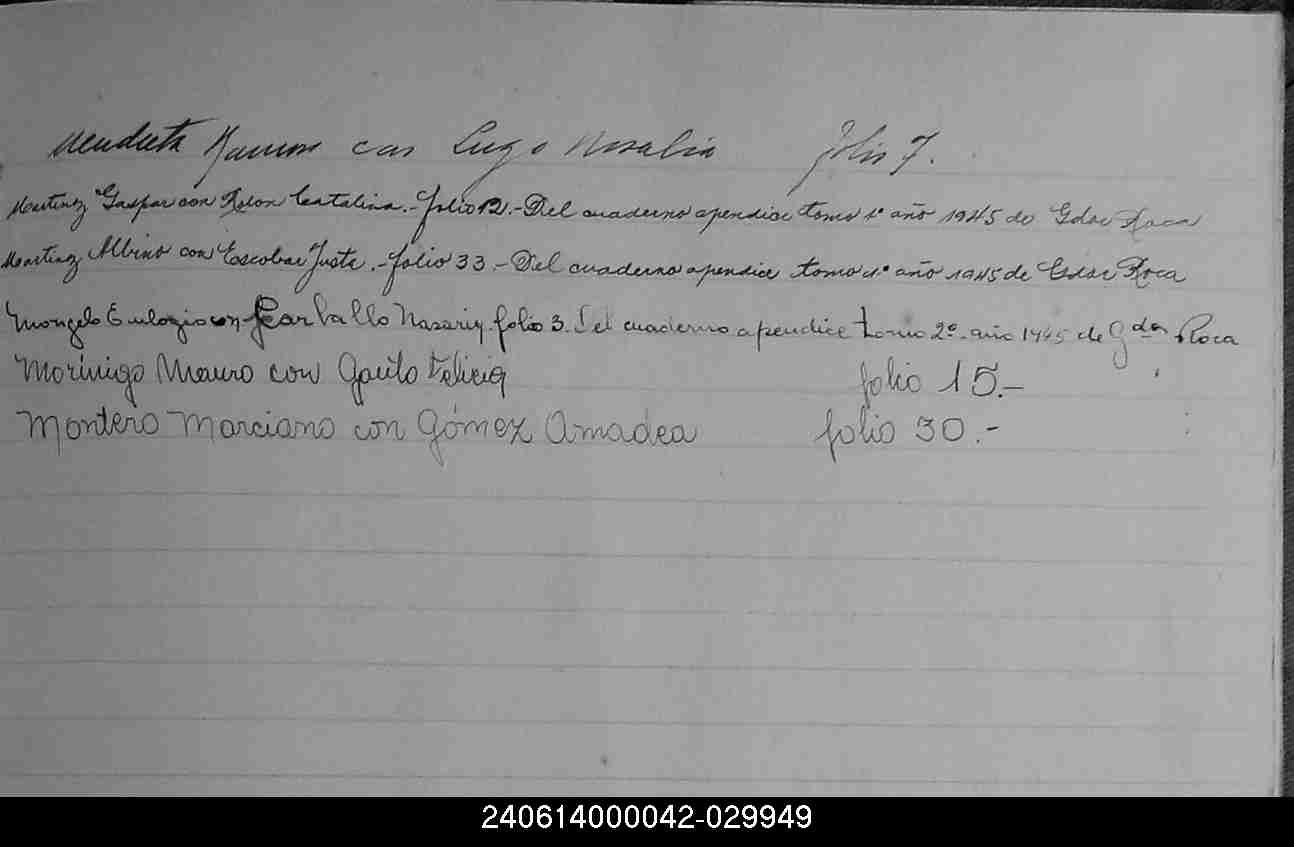 Mendieta Ramon con Lugo Rosalia folio 7.
Martinez Gaspar con Rolon Catalina.- folio 12.- Del cuaderno apendice tomo 1º año 1945 de Gdor Roca
Martinez Albino con Escobar Justa.- folio 33.- Del cuaderno apendice tomo 1º año 1945 de Gdor Roca
Mongelo Eulogio con Carballo Nazaria folio 3. Del cuaderno apendice tomo 2º año 1945 de Gdor Roca
Morinigo Mauro con Gauto Felicia folio 15.-
Montero Marciano con Gómez Amadea folio 30.-
240614000042-029949